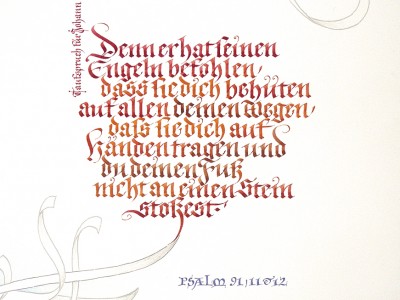 Taufspruch für Johann
Denn er hat seinen
Engeln befohlen,
dass sie dich behüten
auf allen deinen Wegen,
daſs sie dich auf
Händen tragen und
du deinen Fuß
nicht an einen Stein
stoßest.
PSALM 91,11&12